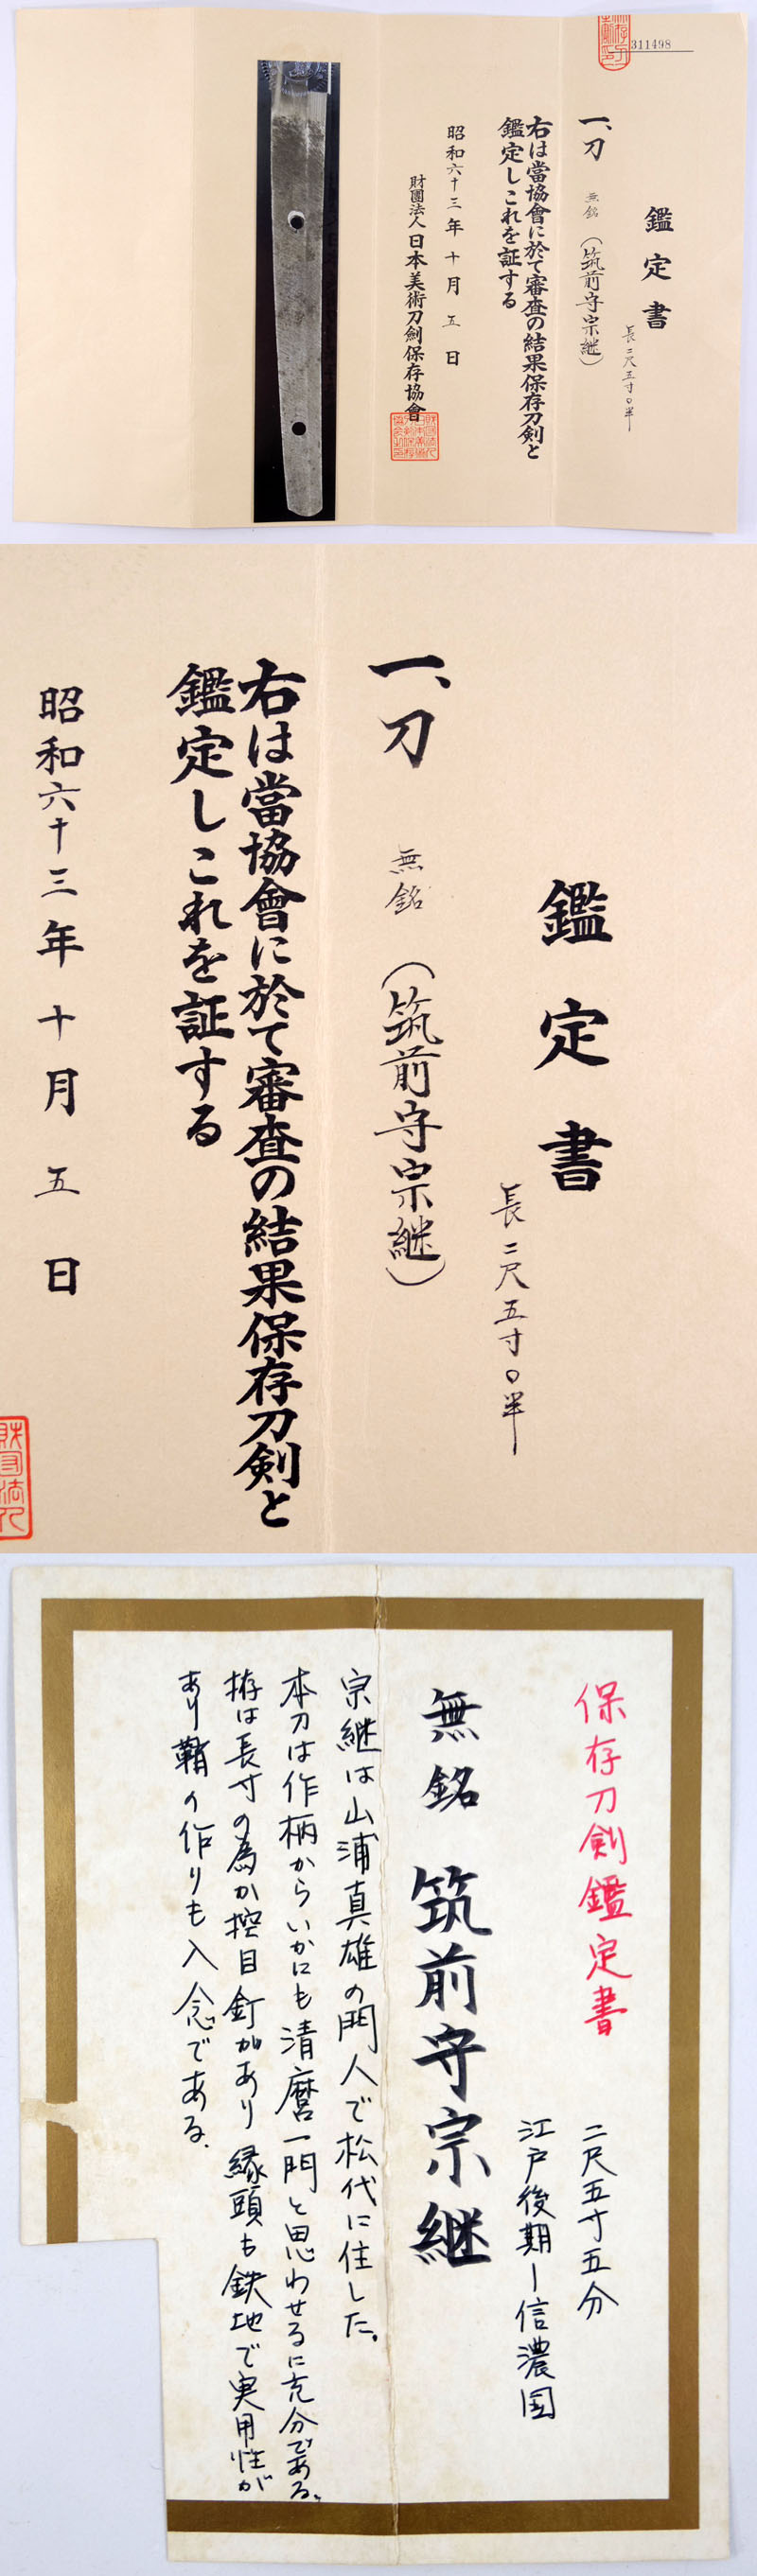 311498
鑑定書
長二尺五寸〇半
一、刀 無銘 (筑前守宗継)
右は當協會に於て審査の結果保存刀剣と
鑑定しこれを証する
昭和六十三年十月五日
財團法人日本美術刀劍保存協會
鑑定書
長二尺五寸〇半
一、刀 無銘 (筑前守宗継)
右は當協會に於て審査の結果保存刀剣と
鑑定しこれを証する
昭和六十三年十月五日
財団法人
保存刀剣鑑定書
二尺五寸五分
江戸後期ー信濃国
無銘 筑前守宗継
宗継は山浦真雄の門人で松代に住した。
本刀は作柄からいかにも清麿一門と思わせるに充分である。
拵は長寸の為か控目釘があり縁頭も鉄地で実用性が
あり鞘の作りも入念である.